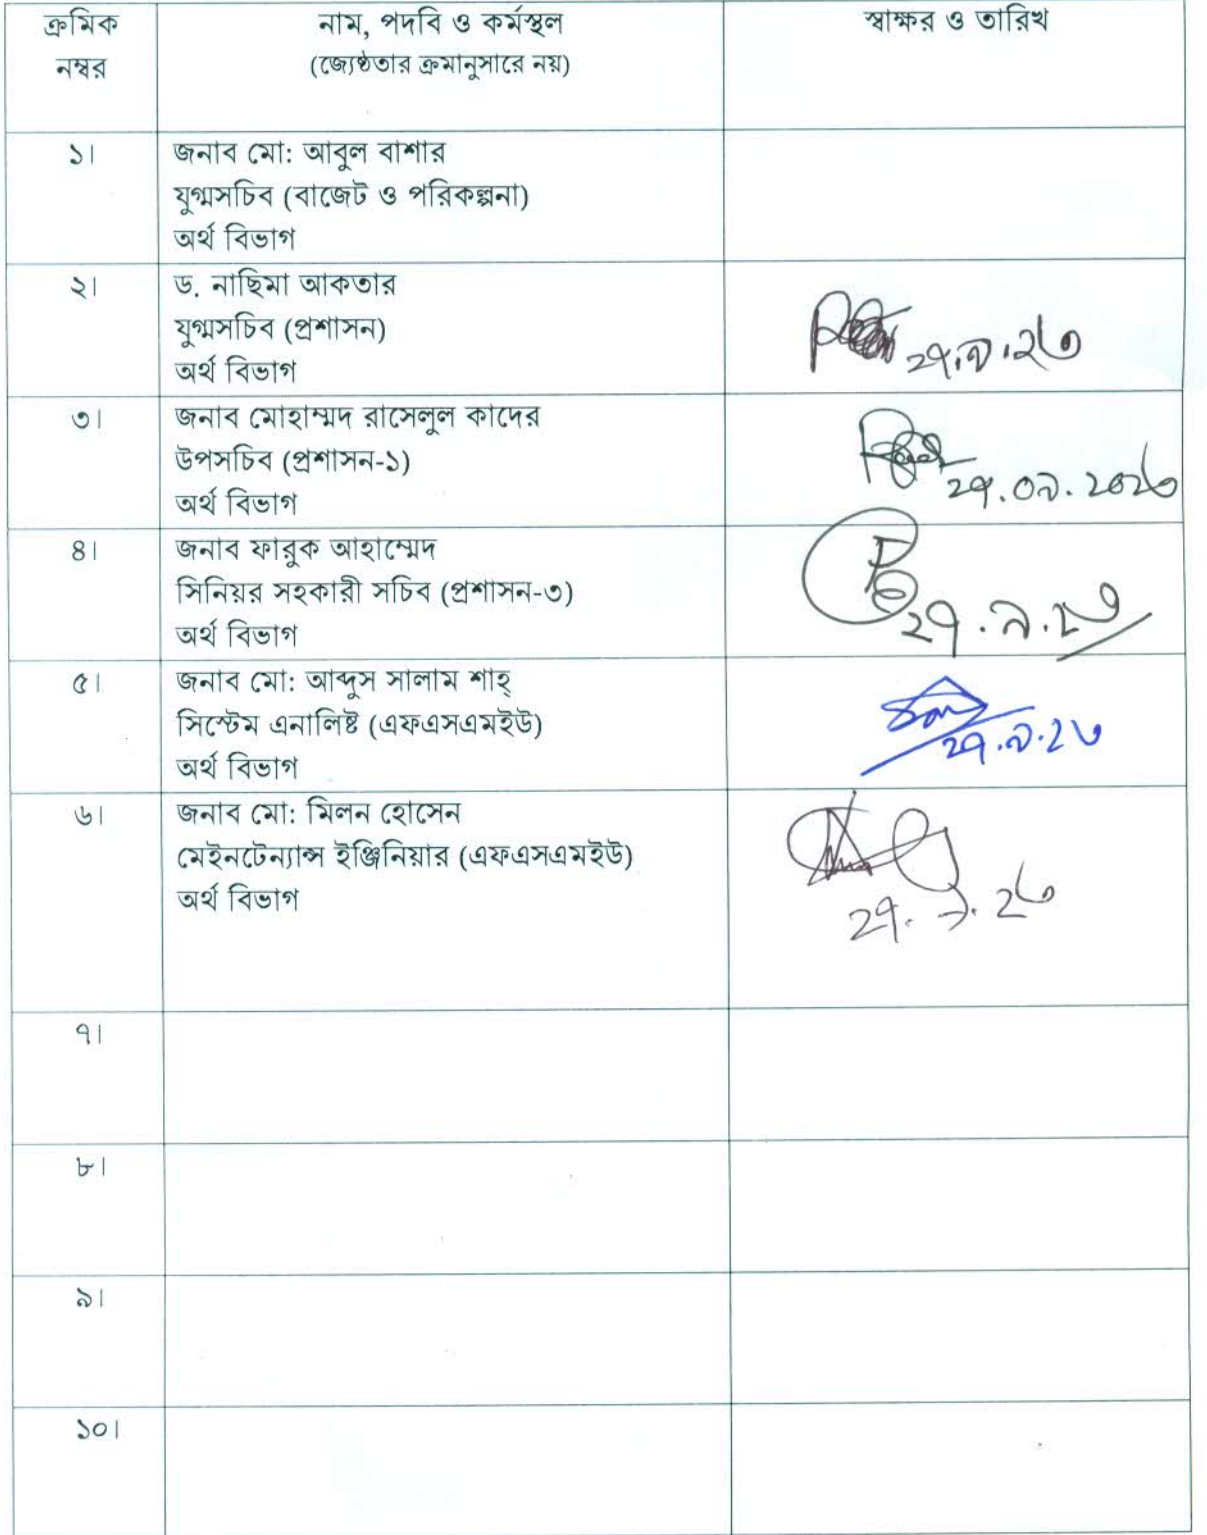 ক্রমিক নম্বর
নাম, পদবি ও কর্মস্থল
(জ্যেষ্ঠতার ক্রমানুসারে নয়)
স্বাক্ষর ও তারিখ
১।
জনাব মো: আবুল বাশার
যুগ্মসচিব (বাজেট ও পরিকল্পনা)
অর্থ বিভাগ
২।
ড. নাছিমা আকতার
যুগ্মসচিব (প্রশাসন)
অর্থ বিভাগ
২৭.৯.২৩
৩।
জনাব মোহাম্মদ রাসেলুল কাদের
উপসচিব (প্রশাসন-১)
অর্থ বিভাগ
২৭.০৯.২০২৩
৪।
জনাব ফারুক আহাম্মেদ
সিনিয়র সহকারী সচিব (প্রশাসন-৩)
অর্থ বিভাগ
২৭.৯.২৩
৫।
জনাব মো: আব্দুস সালাম শাহ্
সিস্টেম এনালিষ্ট (এফএসএমইউ)
অর্থ বিভাগ
২৭.৯.২৩
৬।
জনাব মো: মিলন হোসেন
মেইনটেন্যান্স ইঞ্জিনিয়ার (এফএসএমইউ)
অর্থ বিভাগ
২৭.৯.২৩
৭।
৮।
৯।
১০।